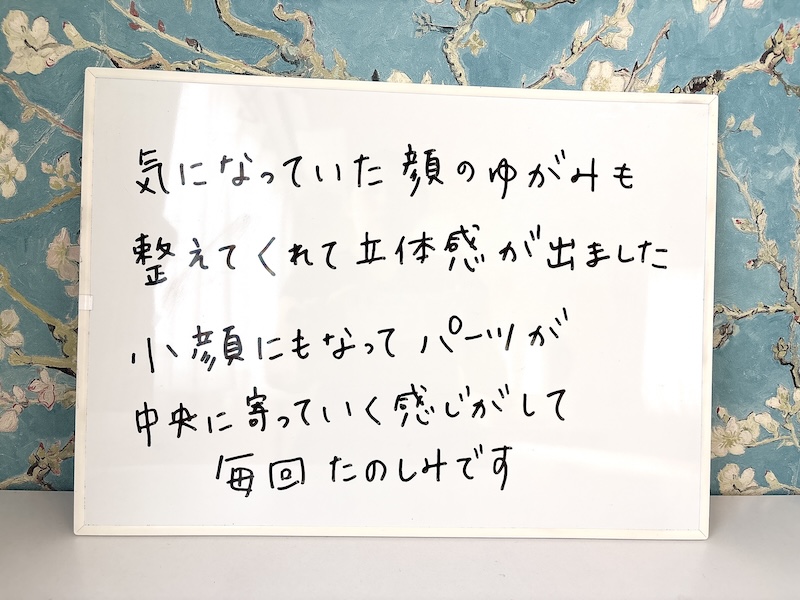 気になっていた顔のゆがみも
整えてくれて立体感が出ました
小顔にもなってパーツが
中央に寄っていく感じがして
毎回たのしみです